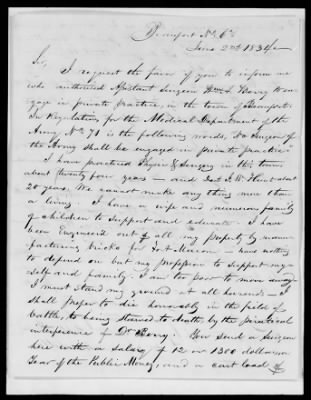 Beaufort No. Ca
June 2nd 1834
Sir,
I request the favor of you to inform me
who authorised Assistant Surgeon Wm. L. Berry to en-
gage in private practice, in the town of Beaufort.
In Regulation, for the Medical Department of the
Army No 71 is the following words, No Surgeon of
the Army shall be engaged in private practice
I have practiced Physic & Surgery in this town
about twenty four years — and Doct. J. W. Hunt about
20 years. We cannot make any thing more than
a living. I have a wife and numerous family
of children to support and educate. I have
been Engineerd out of all my property by manu-
facturing bricks for Fort Macon — have nothing
to depend on but my profession to support my-
self and family. I am too poor to move away
I must stand my ground at all hazards — I
shall prefer to die honorably in the field of
battle, to being starved to death, by the piratical
interference of Dr Berry. You send a Surgeon
here with a salary of 12 or 1300 dollars a
Year of the Public Money, and a cart load of